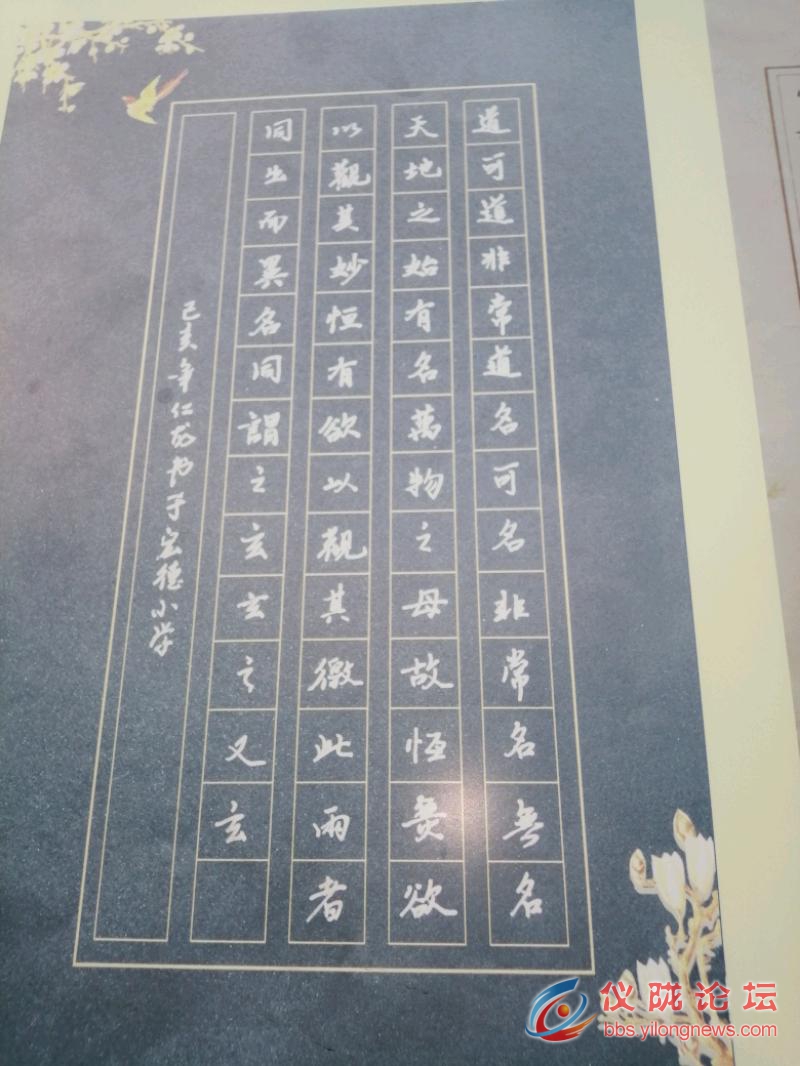 道可道非常道名可名非常名無名
天地之始有名萬物之母故恒無欲
以觀其妙恒有欲以觀其徼此兩者
同出而異名同謂之玄玄之又玄
己亥年仁龙书于宏德小学
仪陇论坛
bbs.yilongnews.com